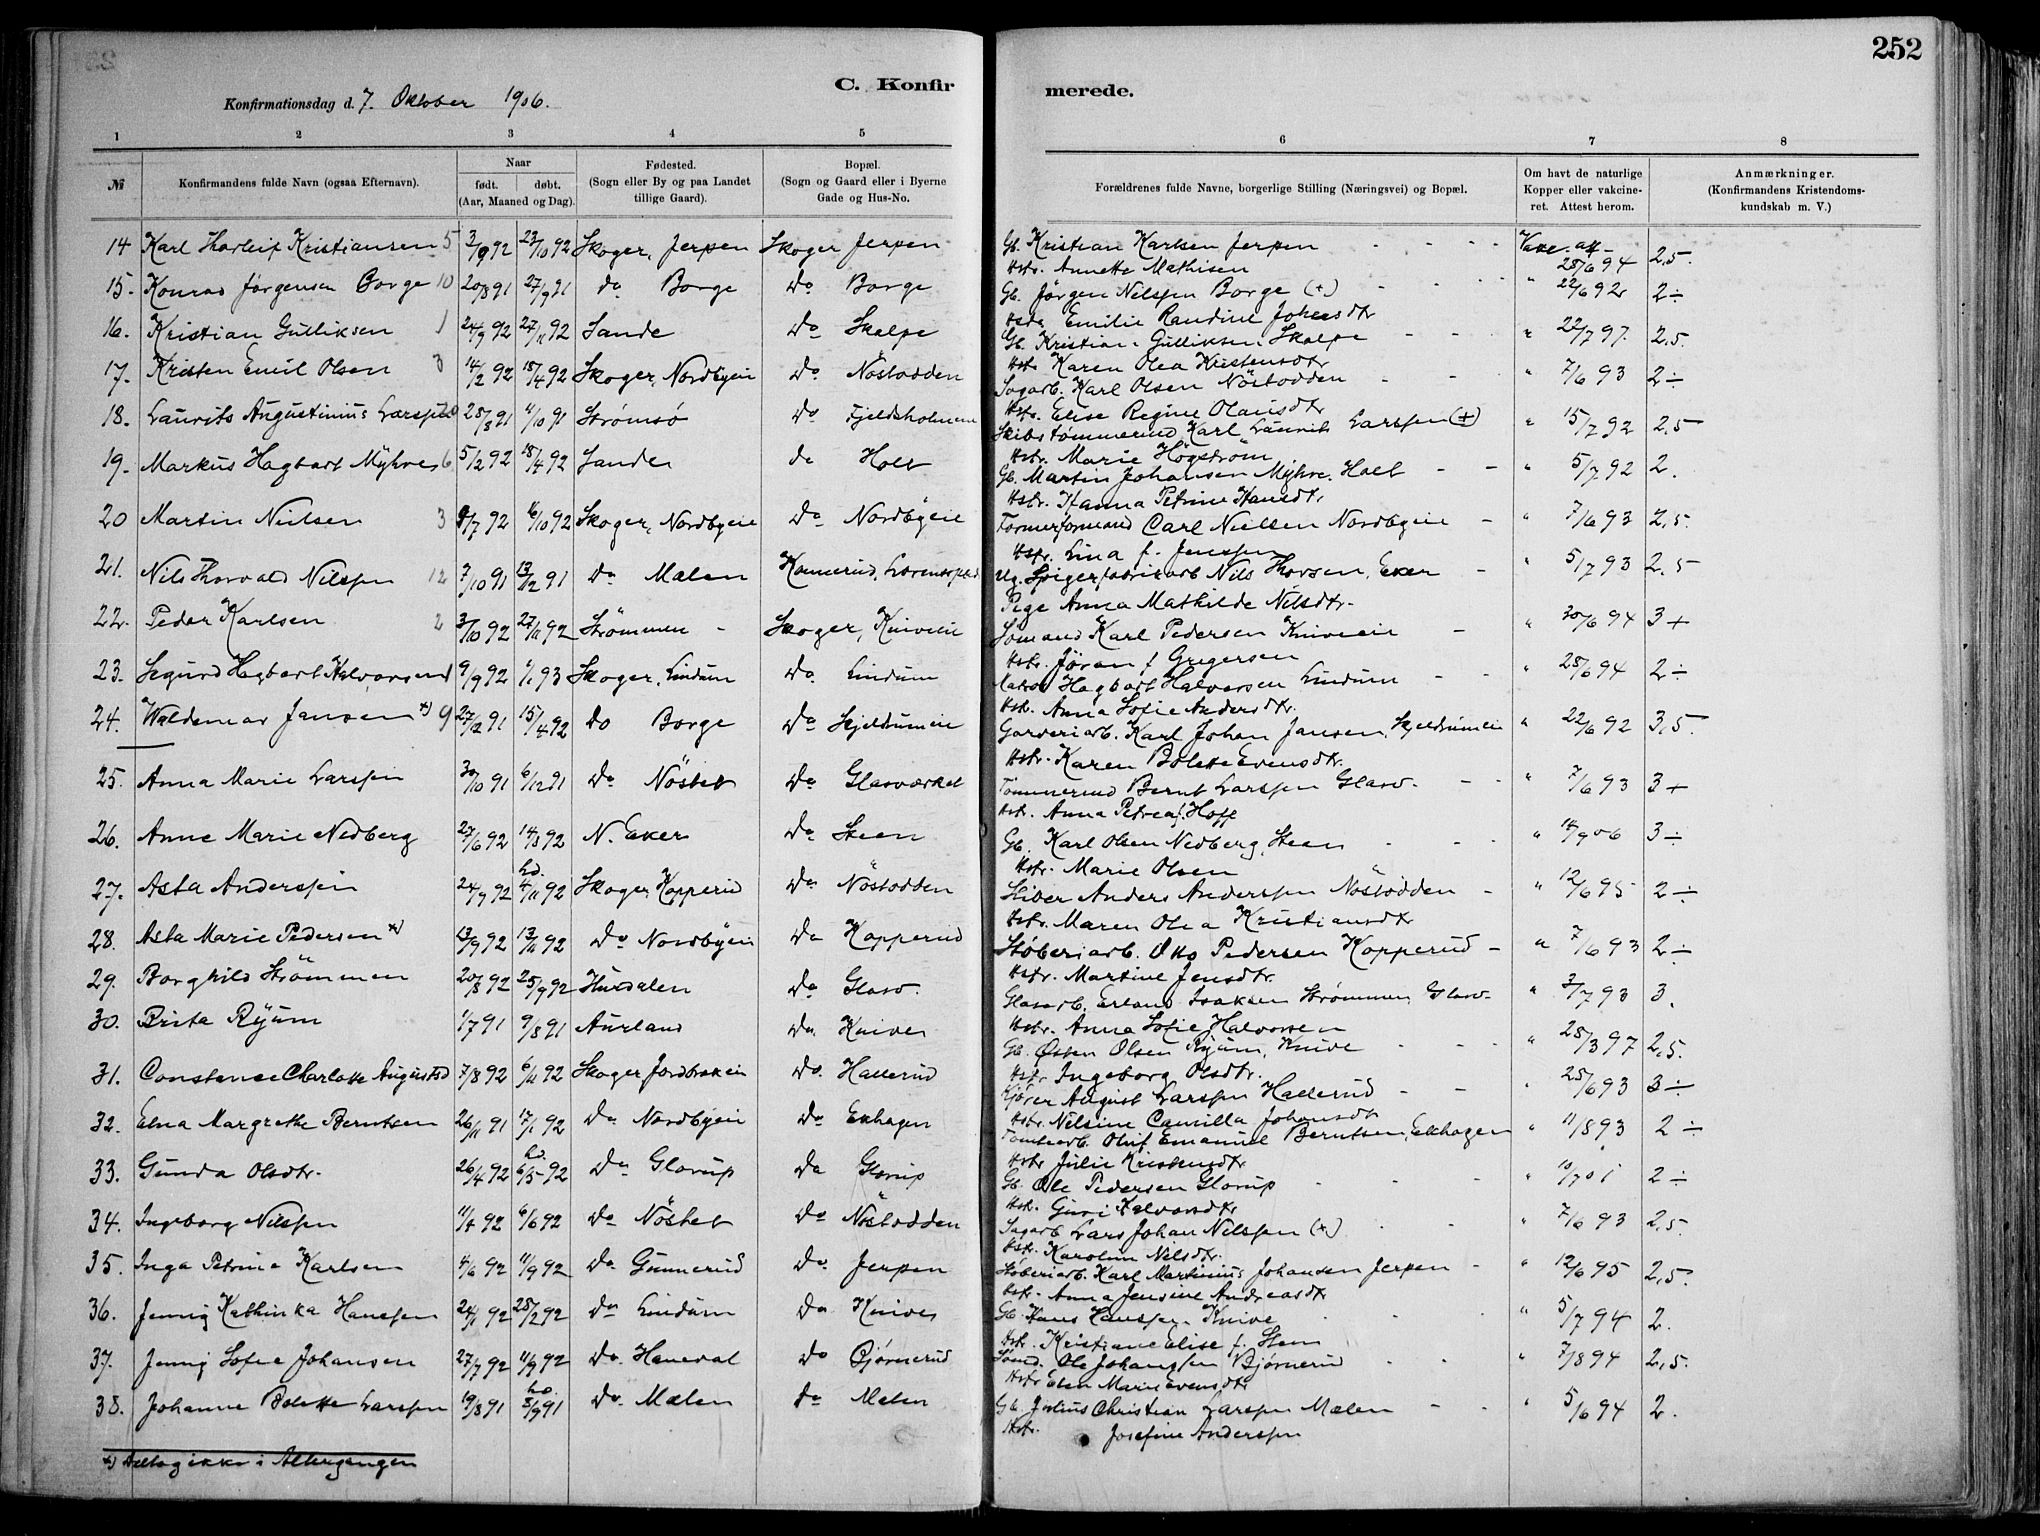 252
C. Konfirmerede.
Konfirmationsdag d. 7. Oktober 1906.
1 2 3 4 5 6 7 8
№ Konfirmandens fulde Navn (ogsaa Efternavn). Naar født. døbt. (Aar, Maaned og Dag). Fødested. (Sogn eller By og paa Landet tillige Gaard). Bopæl. (Sogn og Gaard eller i Byerne Gade og Hus-No. Forældrenes fulde Navne, borgerlige Stilling (Næringsvei) og Bopæl. Om havt de naturlige Kopper eller vakcineret. Attest herom. Anmærkninger. (Konfirmandens Kristendomskundskab m. V.)
14 Karl Thorleif Kristiansen 5 3/9 92 23/10 92 Skoger, Jerpen Skoger Jerpen Gb. Kristian Karlsen Jerpen - - - Vakc. att. 28/6 94 2,5.
Hstr. Annette Mathisen
15. Konrad Jørgensen Borge 10 20/8 91 27/9 91 do Borge Do Borge Gb. Jörgen Nilssen Borge (+) - - " 22/6 92 2÷
Emilie Randine Johersdtr
16. Kristian Gulliksen 1 24/9 92 27/11 92 Sande Do Skalpe Gb. Kristian Gulliksen Skalpe - - " 22/7 97. 2,5.
Hstr. Karen Olea Kristensdtr
17. Kristen Emil Olsen 3 14/2 92 18/4 92 Skoger, Nordbyein Do Nöstodden Sagarb. Karl Olsen Nöstodden - - " 7/6 93 2÷
Hstr. Elise Regine Olausdtr
18. Laurits Augustinius Larssen 28/3 91 4/10 91 Strømsö Do Fjeldsholmen Skibstømmermd Karl Laurits Larssen (+) " 15/7 92 2,5
Hstr. Marie Högström
19. Markus Hagbart Myhre 6 5/2 92 18/4 92 Sande do Holt Gb. Martin Johansen Myhre. Holt - - " 5/7 92 2.
Hstr. Hanna Petrine Hansdtr
20 Martin Nilsen 3 9/7 92 16/10 92 Skoger, Nordbyeie Do Nordbyeie Formerformand Carl Nielsen Nordbyeie - " 7/6 93 2,5.
Hstr. Lina f. Jenssen
21. Nils Thorvald Nilssen 12 7/10 91 13/12 91 Do Mælen Konnerud, Ug. Spigerfabrikarb Nils Thorsen, Eker - " 5/7 93 2,5
Pige Anna Mathilde Nilsdtr.
22. Peder Karlsen 2 3/10 92 27/11 92 Strömmen - Skoger, Kniveie Sømand Karl Pedersen Kniveeie - " 30/6 94 3+
Hstr. Jöran f Gregersen
23. Segurd Hagbart Halvorsen 1 9/9 92 6/1 93 Skoger, Lindum Do Lindum Matros Hagbart Halvorsen Lindum - - " 28/6 94 2÷
Hstr. Anna Sofie Andersdtr.
24. Waldemar Jansen *) 9 27/12 91 15/4 92 Do Borge Do Skjeldrumeie Garveriarb. Karl Johan Jansen, Skjeldrumeie " 22/6 92 3,5.
Hstr. Karen Bolette Evensdtr.
25. Anna Marie Larssen 30/10 91 6/12 91 Do Nöstet Do Glasværket Tömmermd Bernt Larssen Glasv. - - " 7/6 93 3+
Hstr. Anna Petrea f. Hoff
26. Anne Marie Nedberg 27/6 92 14/8 92 N. Eker Do Steen Gb. Karl Olsen Nedberg, Steen - - " 14/9 06 3÷
Hstr. Marie Olsen
27. Asta Anderssen 24/9 92 hd. 4/11 92 Skoger, Kopperud Do Nöstodden Sliber Anders Anderssen Nöstodden - " 12/6 95 2÷
Hstr. Maren Olea Kristiansdtr
28. Asta Marie Pedersen *) 13/9 92 13/11 92 Do Nordbyein Do Kopperud Støberiarb. Otto Pedersen Kopperud - " 7/6 93 2÷
Hstr. Martine Jensdtr.
29. Borghild Strömmen 20/8 92 25/9 92 Hurdalen Do Glasv. Glasarb. Erland Isaksen Strømmen Glasv. " 3/7 93 3.
Hstr. Anna Sofie Halvorsen
30. Brita Ryum 1/7 91 9/8 91 Aurland Do. Knive Gb. Østen Olsen Ryum, Knive - - - " 28/3 97 2,5.
Hstr Ingeborg Olsdtr.
31. Constance Charlotte Augustsd 7/8 92 6/11 92 Skoger Jordbrækein Do. Hallerud Kjörer August Larssen Hallerud - - " 25/6 93 3÷
Hstr. Nilsine Camilla Johansdt
32. Elna Margrethe Berntsen 26/11 91 17/1 92 Do Nordbyein Do Ekhagen Tomtearb. Oluf Emanuel Berntsen, Ekhagen " 11/8 93 2÷
Hstr Julie Kristensdtr
33. Gunda Olsdtr. 26/4 92 hd. 6/5 92 Do Glorup Do Glorup Gb. Ole Pedersen Glorup - - - " 10/7 01 2÷
Hstr. Guri Halvorsdtr
34. Ingeborg Nilssen 11/4 92 6/6 92 Do Nöstet Do Nöstodden Sagarb Lars Johan Nilssen (+) - - " 7/6 93 2,5.
Hstr. Karoline Nilsdtr.
35. Inga Petrine Karlsen 4/6 92 11/9 92 Do Gunnerud Do. Jerpen Støberiarb. Karl Martinius Johansen Jerpen - " 12/6 95 2,5.
Hstr. Anna Jensine Andreasdtr
36. Jenny Kathinka Hanssen 24/1 92 28/2 92 Do Lindum Do Knive Gb. Hans Hanssen Knive - - " 5/7 94 2.
Hstr. Kristiane Elise f. Sten
37. Jenny Sofie Johansen 27/7 92 11/9 92 Do. Haneval Do Bjørnerud Sømd. Ole Johanssen Bjørnerud - - " 7/8 94 2,5.
Hstr Elen Marie Evensdtr
38. Johanne Bolette Larssen 19/8 91 hd. 8/9 91 Do. Mælen Do Mælen Gb. Julius Christian Larssen Mælen - - " 5/6 94 2.
Hstr. Josefine Anderssen
*) Deltog ikke i Altergangen